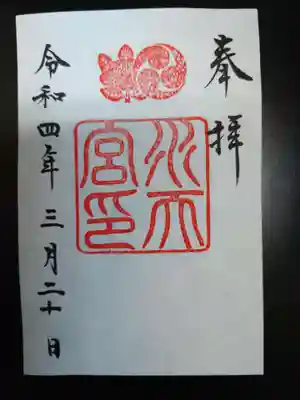 奉拝
水天宮印
令和四年三月二十日